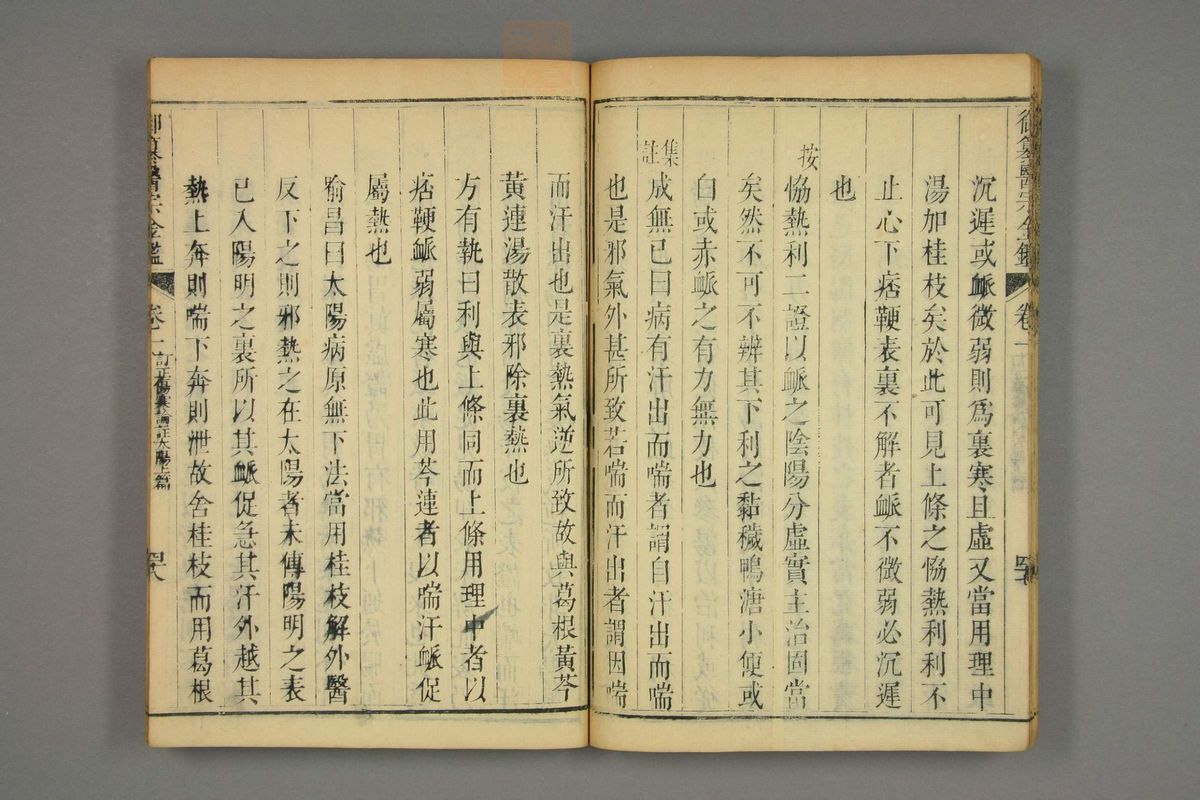 御纂醫宗金鑑 卷一
沉遲或衇微弱則爲裏寒且虛又當用理中
湯加桂枝矣於此可見上條之恊熱利利不
止心下痞鞕表裏不解者衇不微弱必沉遲
也
按 恊熱利二證以衇之陰陽分虛實主治固當
矣然不可不辨其下利之黏穢鴨溏小便或
白或赤衇之有力無力也
集註 成無已曰病有汗出而喘者謂自汗出而喘
也是邪氣外甚所致若喘而汗出者謂因喘
而汗出也是裏熱氣逆所致故與葛根黃芩
黃連湯散表邪除裏熱也
方有執曰利與上條同而上條用理中者以
痞鞕衇弱屬寒也此用芩連者以喘汗衇促
屬熱也
喻昌曰太陽病原無下法當用桂枝解外醫
反下之則邪熱之在太陽者未傳陽明之表
已入陽明之裏所以其衇促急其汗外越其
熱上奔則喘下奔則泄故舍桂枝而用葛根
御纂醫宗金鑑 卷一 訂正傷寒論註太陽上篇 四十八